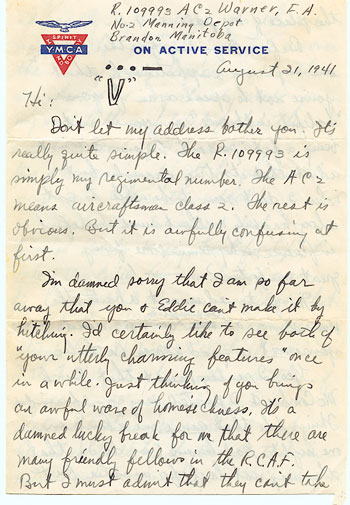 R. 109993 AC2 Warner, E.A.
No. 2 Manning Depot
Brandon Manitoba
SPIRIT
Y.M.C.A
MIND
BODY
ON ACTIVE SERVICE
August 21, 1941
...—
"V"
Hi:
Don't let my address bother you. It's
really quite simple. The R.109993 is
simply my regimental number. The AC2
means aircraftsman class 2. The rest is
obvious. But it is awfully confusing at
first.
I'm damned sorry that I am so far
away that you & Eddie can't make it by
hitching. I'd certainly like to see both of
"your utterly charming features" once
in a while. Just thinking of you brings
an awful wave of homesickness. It's a
damned lucky break for me that there are
many friendly fellows in the R.C.A.F.
But I must admit that they can't take